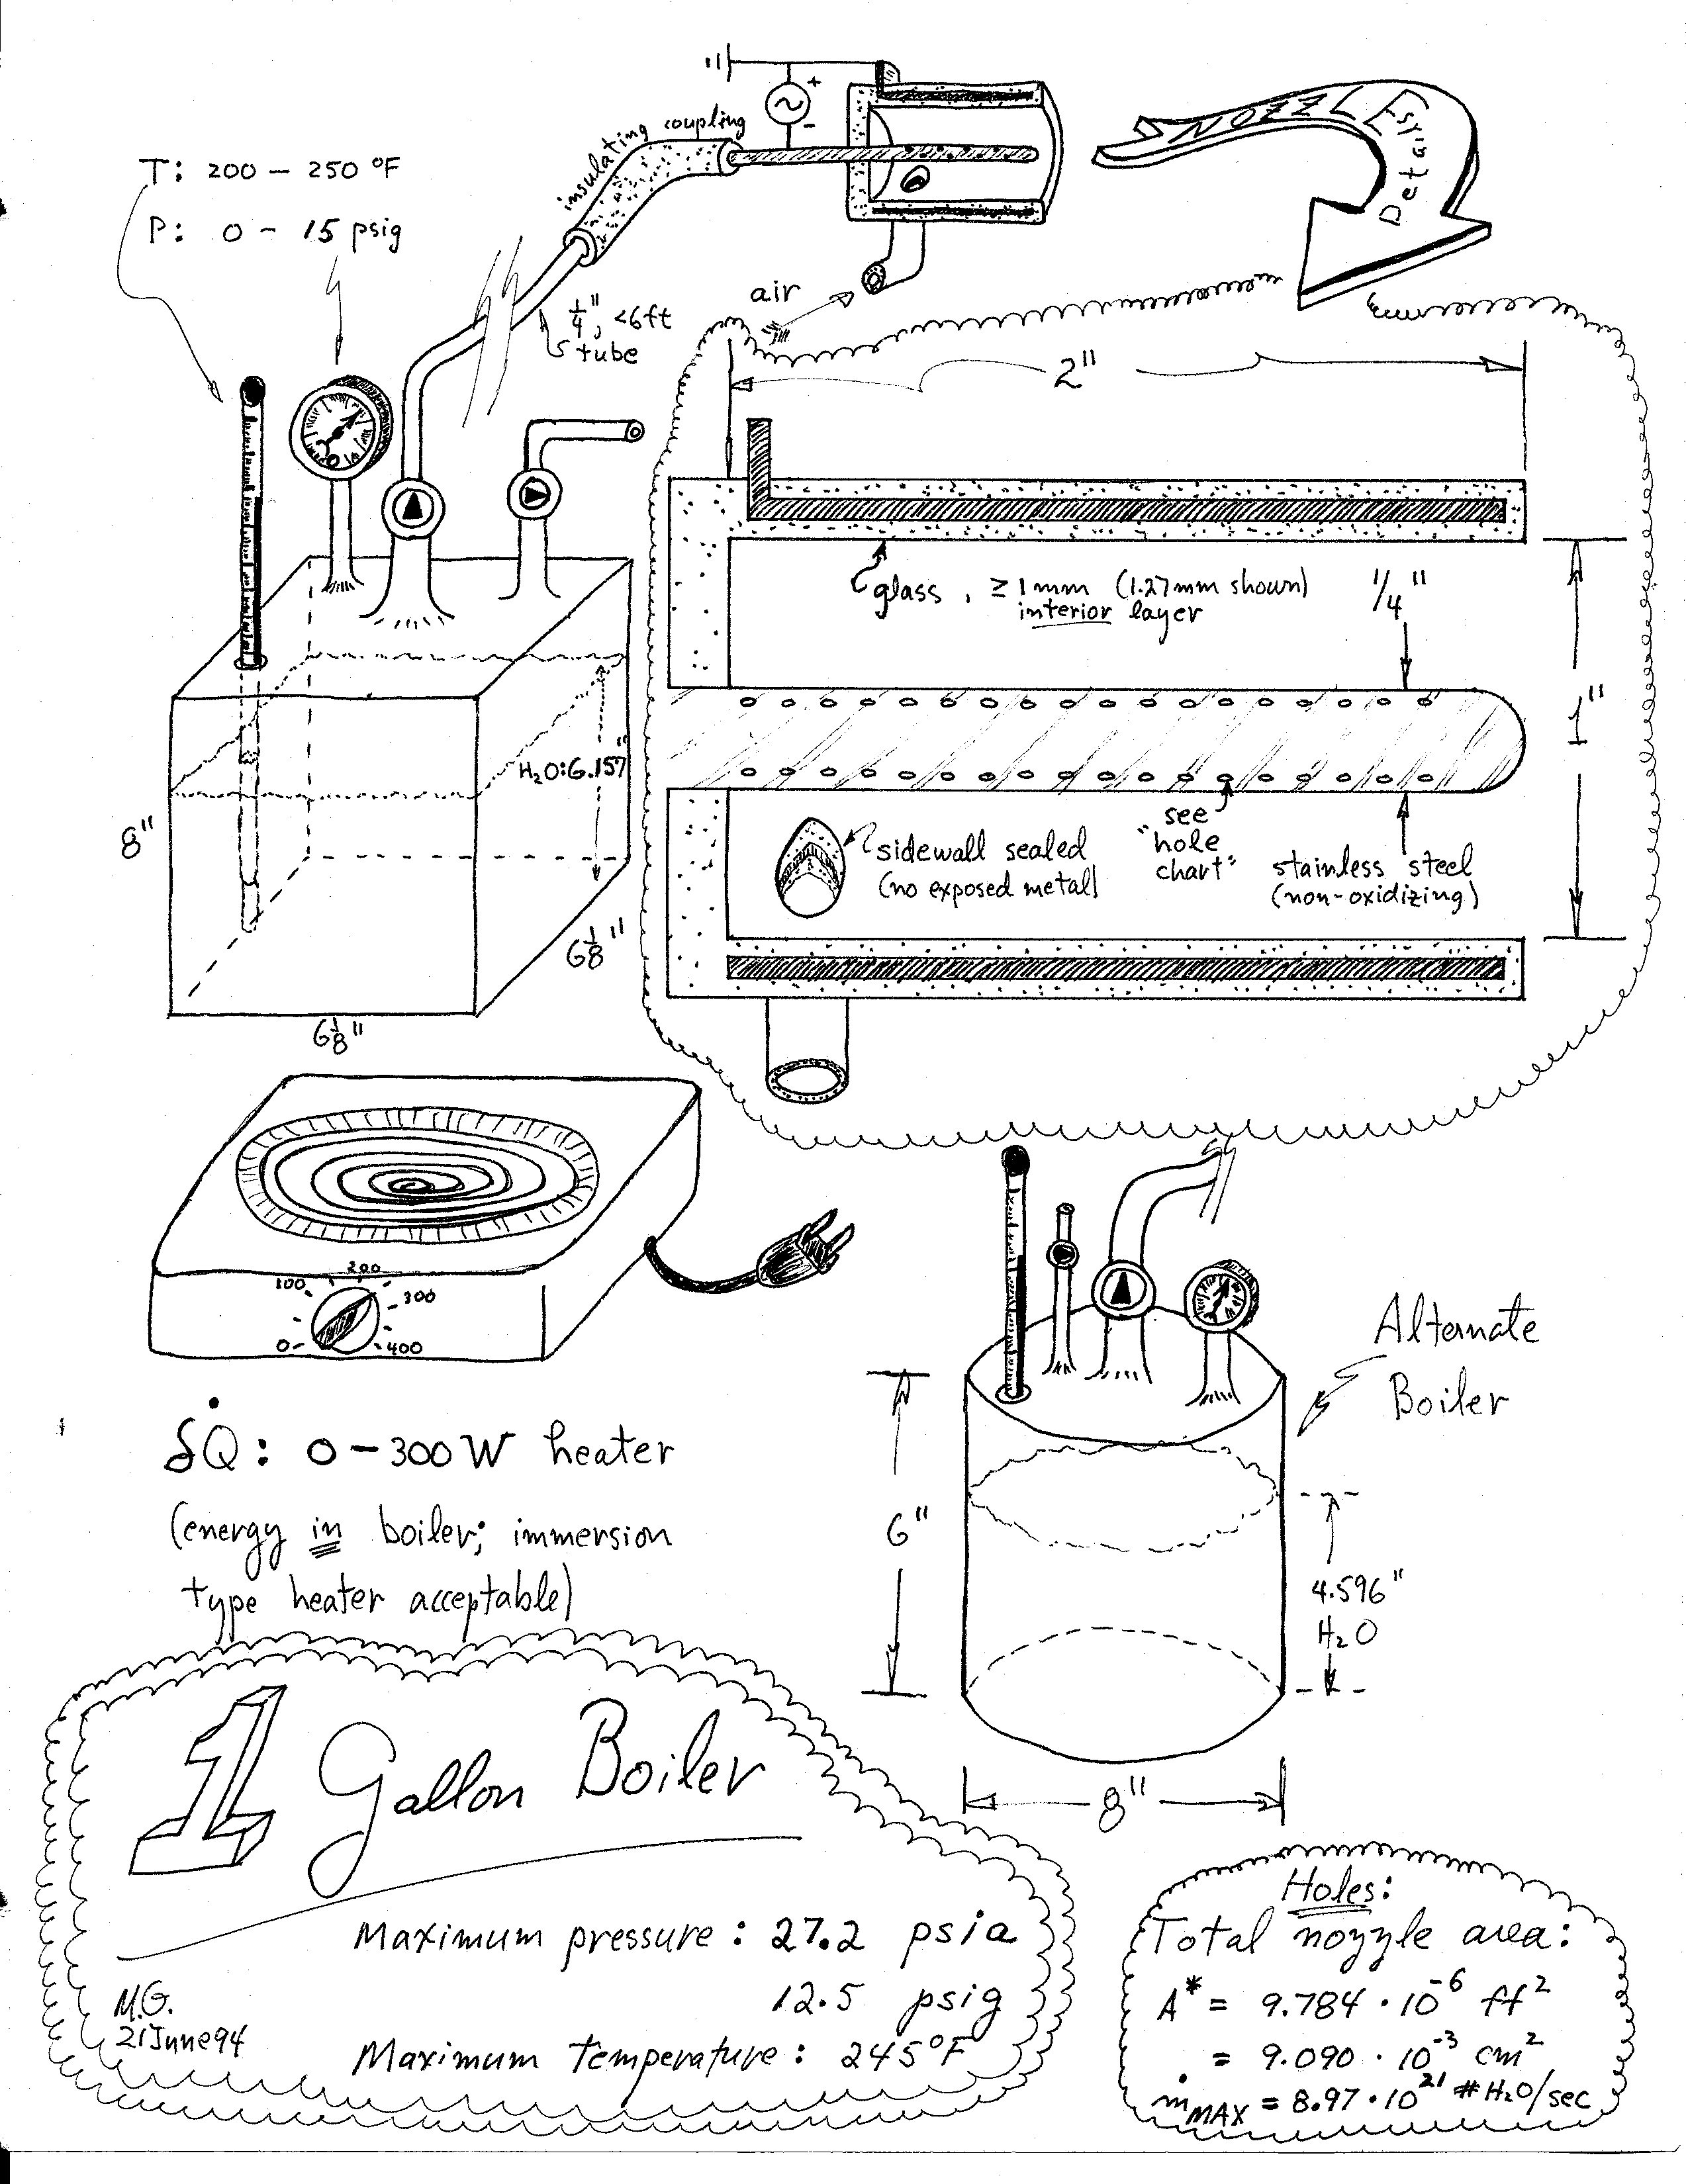 T: 200 – 250 °F
P: 0 – 15 psig
insulating coupling
+
-
NOZZLE
Detail
air
1/4", <6ft
tube
2"
glass, ≥ 1mm (1.27mm shown)
interior layer
1/4"
1"
H₂O: 6.157"
8"
6 1/8"
6 1/8"
sidewall sealed
(no exposed metal)
see
"hole
chart"
stainless steel
(non-oxidizing)
0
100
200
300
400
δQ̇: 0 – 300 W heater
(energy in boiler; immersion
type heater acceptable)
Alternate
Boiler
6"
4.596"
H₂O
8"
1 Gallon Boiler
Maximum pressure: 27.2 psia
12.5 psig
Maximum temperature: 245°F
M.G.
21June94
Holes:
Total nozzle area:
A* = 9.784 · 10⁻⁶ ft²
= 9.090 · 10⁻³ cm²
ṁMAX = 8.97 · 10²¹ #H₂O/sec